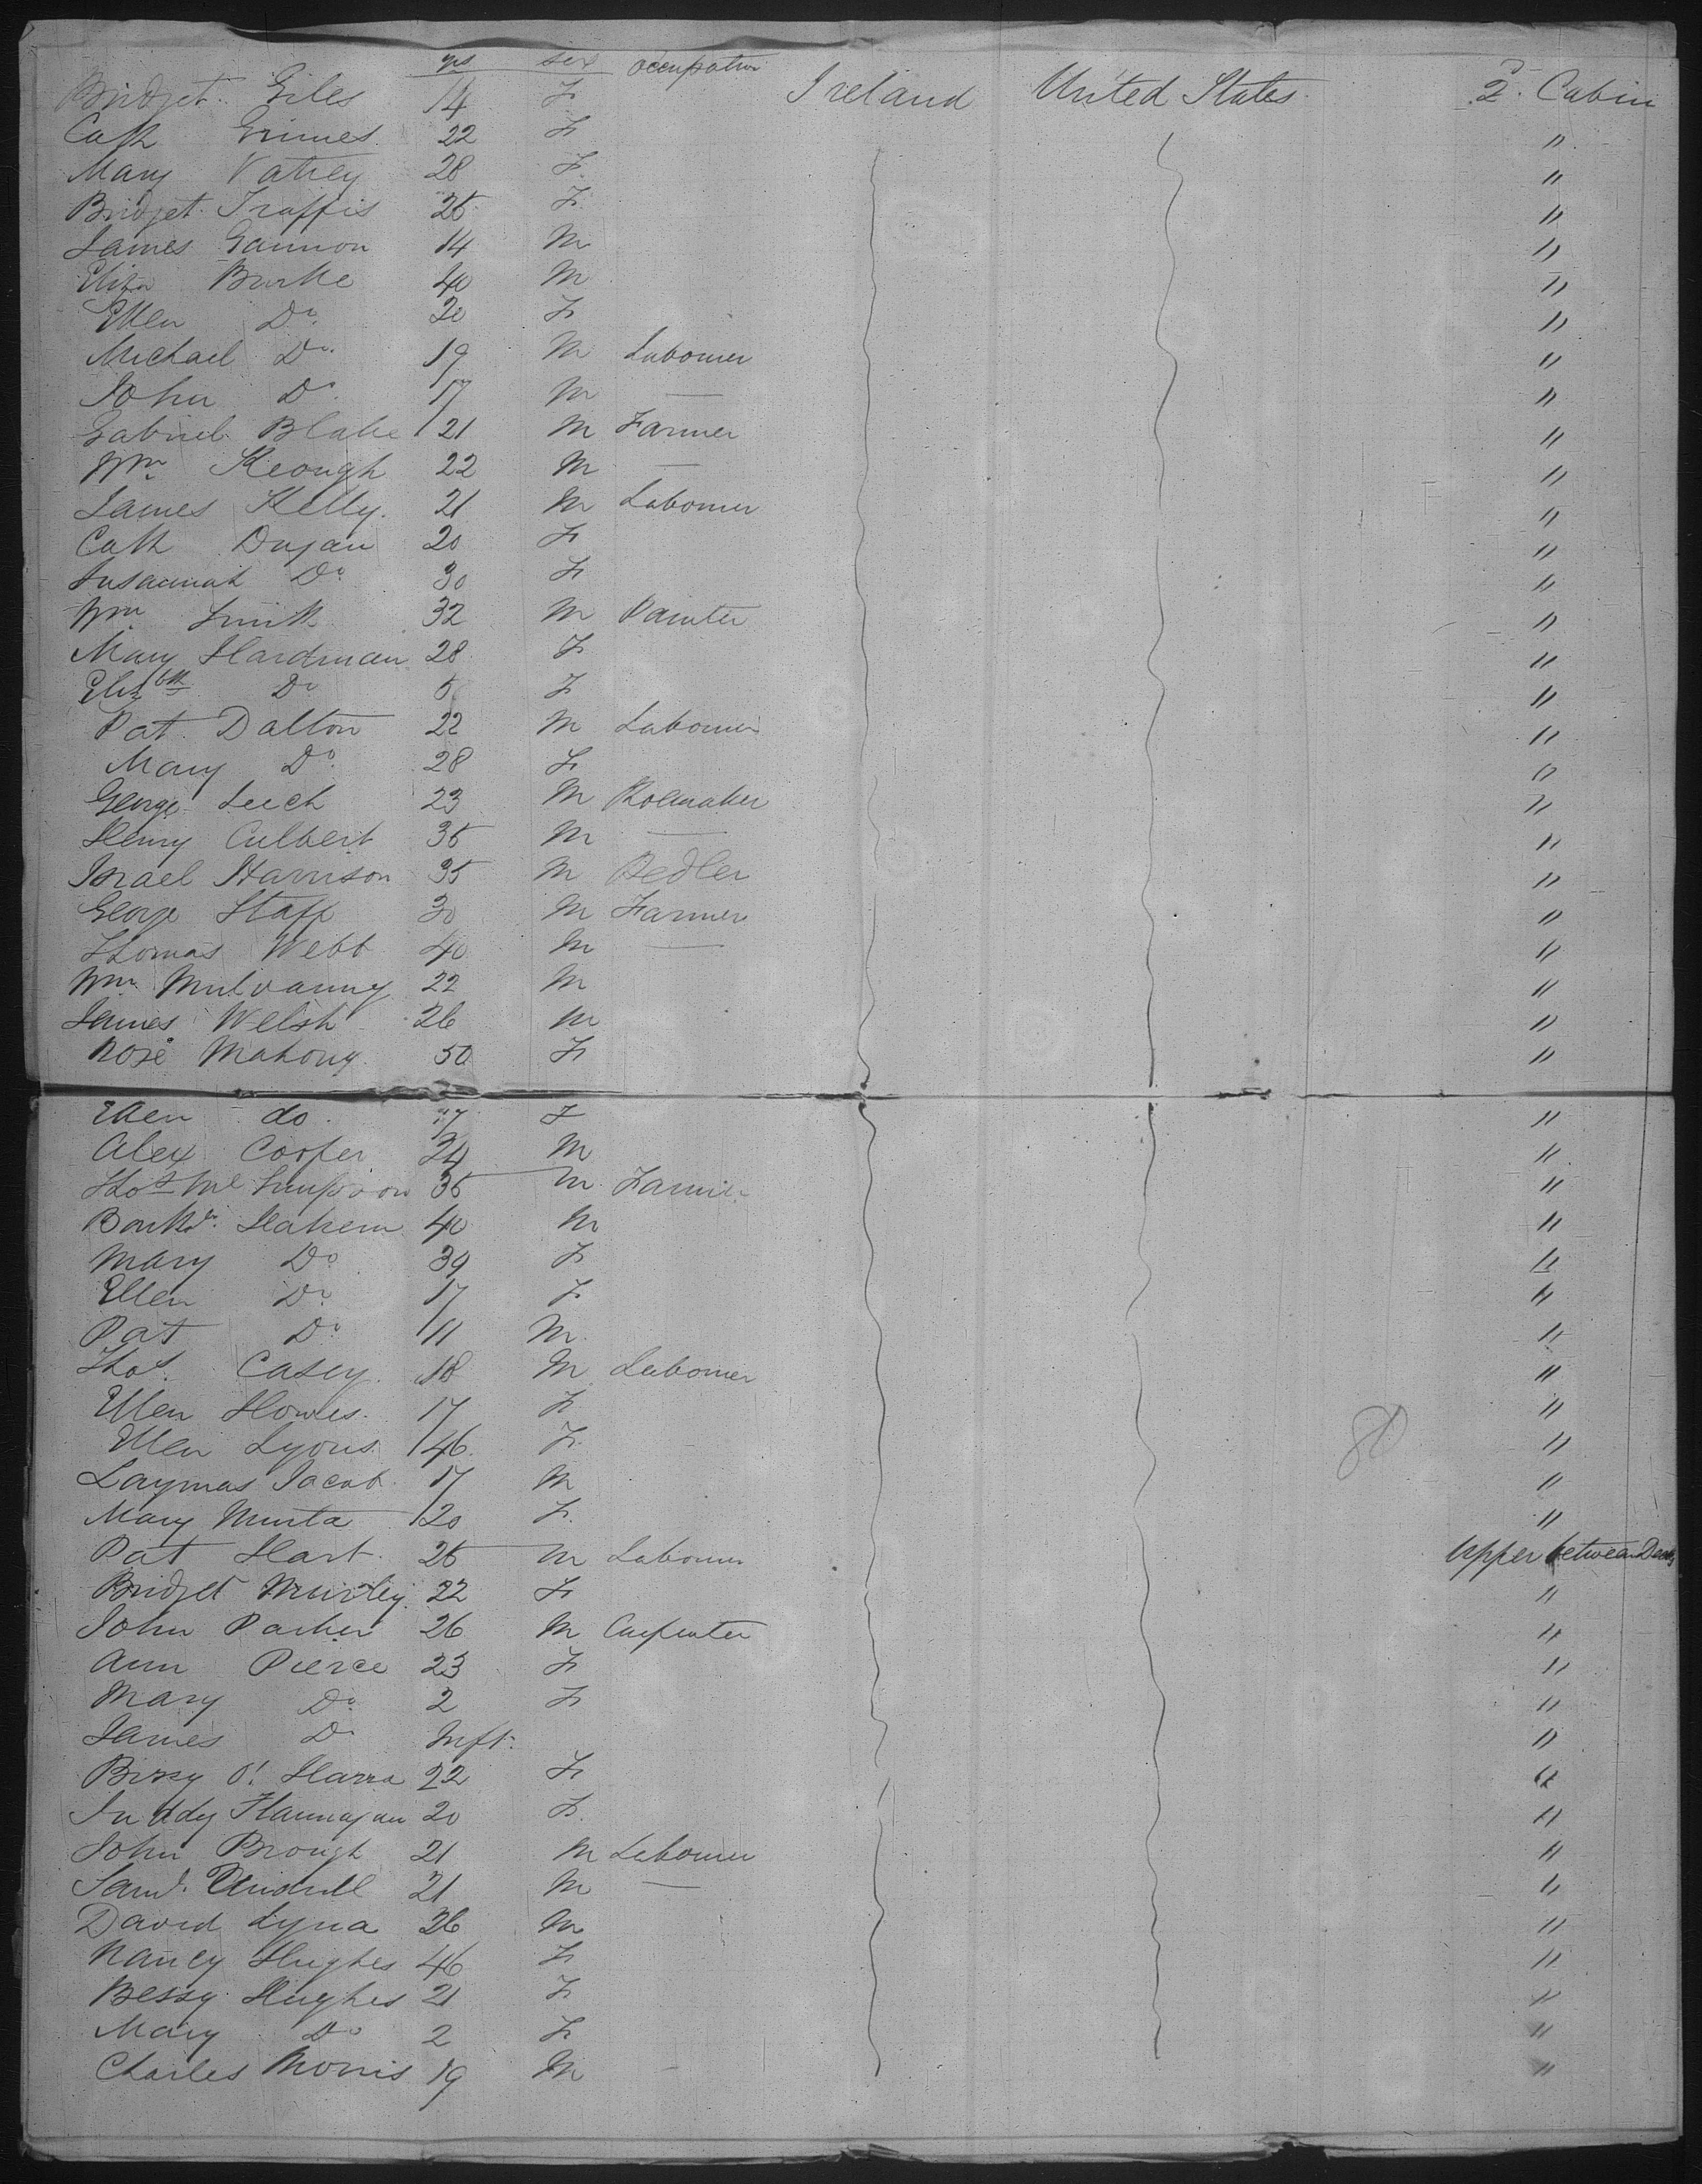 yrs sex occupation
Bridget Giles 14 F Ireland United States 2d Cabin
Cath Grimes 22 F "
Mary 28 F "
Bridget 25 F "
James Gannon 14 M "
Eliza Burke 40 M "
Ellen Do 20 F "
Michael Do 19 M Labourer "
John Do 17 M — "
Gabriel Blake 21 M Farmer "
Wm Keough 22 M — "
James Kelly 21 M Labourer "
Cath Dugan 20 F "
Susannah Do 30 F "
Wm Smith 32 M Painter "
Mary Hardman 28 F "
Elizbth Do 5 F "
Pat Dalton 22 M Labourer "
Mary Do 28 F "
George Leech 23 M "
Henry Culbert 35 M — "
Israel Harrison 35 M Pedler "
George Staff 30 M Farmer "
Thomas Webb 40 M — "
Wm Mulvanny 22 M "
James Welsh 26 M "
Rose Mahony 50 F "
Ellen do 17 F "
Alex Cooper 24 M "
Thos 35 M Farmer "
40 M "
Mary Do 39 F "
Ellen Do 17 F "
Pat Do 11 M "
Thos Casey 18 M Labourer "
Ellen Howes 17 F "
Ellen Lyons 46 F "
Laymas Jacob 17 M "
Mary Murta 20 F "
Pat Hart 25 M Labourer Upper between Decks
Bridget 22 F "
John Parker 26 M Carpenter "
Ann Pierce 23 F "
Mary Do 2 F "
James Do Inft "
Bissy O'Harra 22 F "
Flannagan 20 F "
John Brough 21 M Labourer "
Saml 21 M — "
David Lyna 26 M "
Nancy Hughes 46 F "
Bessy Hughes 21 F "
Mary Do 2 F "
Charles Morris 19 M - "